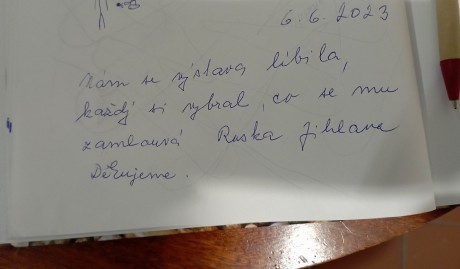 6.6.2023
Nám se výstava líbila,
každý si vybral, co se mu
zamlouvá Jihlava
Děkujeme.